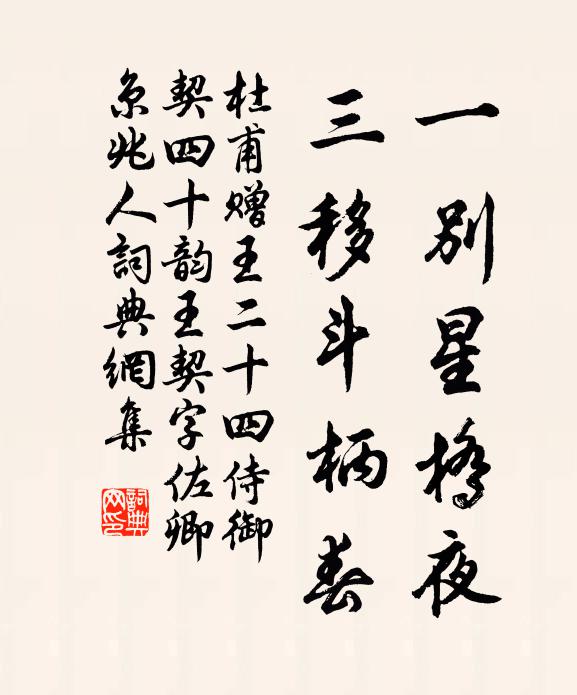 一别星橋夜
三移斗柄春
杜甫赠王二十四侍御
契四十韵王契字佐卿
京兆人詞典網集
詞典网印